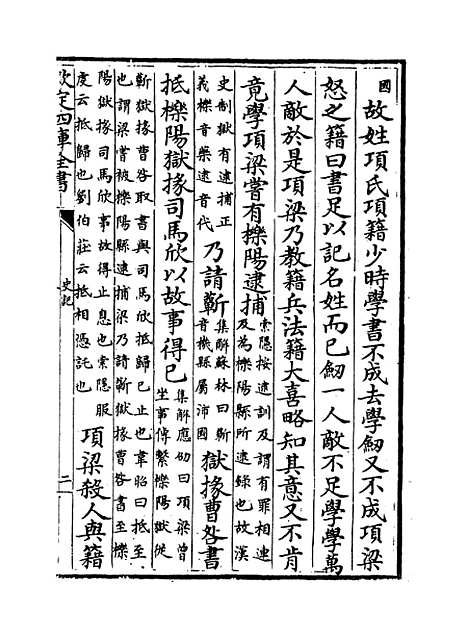 國 故姓項氏項籍少時學書不成去學劒又不成項梁
怒之籍曰書足以記名姓而已劒一人敵不足學學萬
人敵於是項梁乃教籍兵法籍大喜略知其意又不肯
竟學項梁嘗有櫟陽逮捕 索隱按逮訓及謂有罪相連及為櫟陽縣所逮録也故漢
史制獄有逮捕正義櫟音藥逮音代 乃請蘄 集解蘇林曰蘄音機縣屬沛國 獄掾曹咎書
抵櫟陽獄掾司馬欣以故事得已 集解應劭曰項梁曾坐事傳繫櫟陽獄從
蘄獄掾曹咎取書與司馬欣抵歸已止也韋昭曰抵至也謂梁嘗被櫟陽縣逮捕梁乃請蘄獄掾曹咎書至櫟
陽獄掾司馬欣事故得止息也索隱服度云抵歸也劉伯莊云抵相憑託也 項梁殺人與籍
欽定四庫全書 史記 二